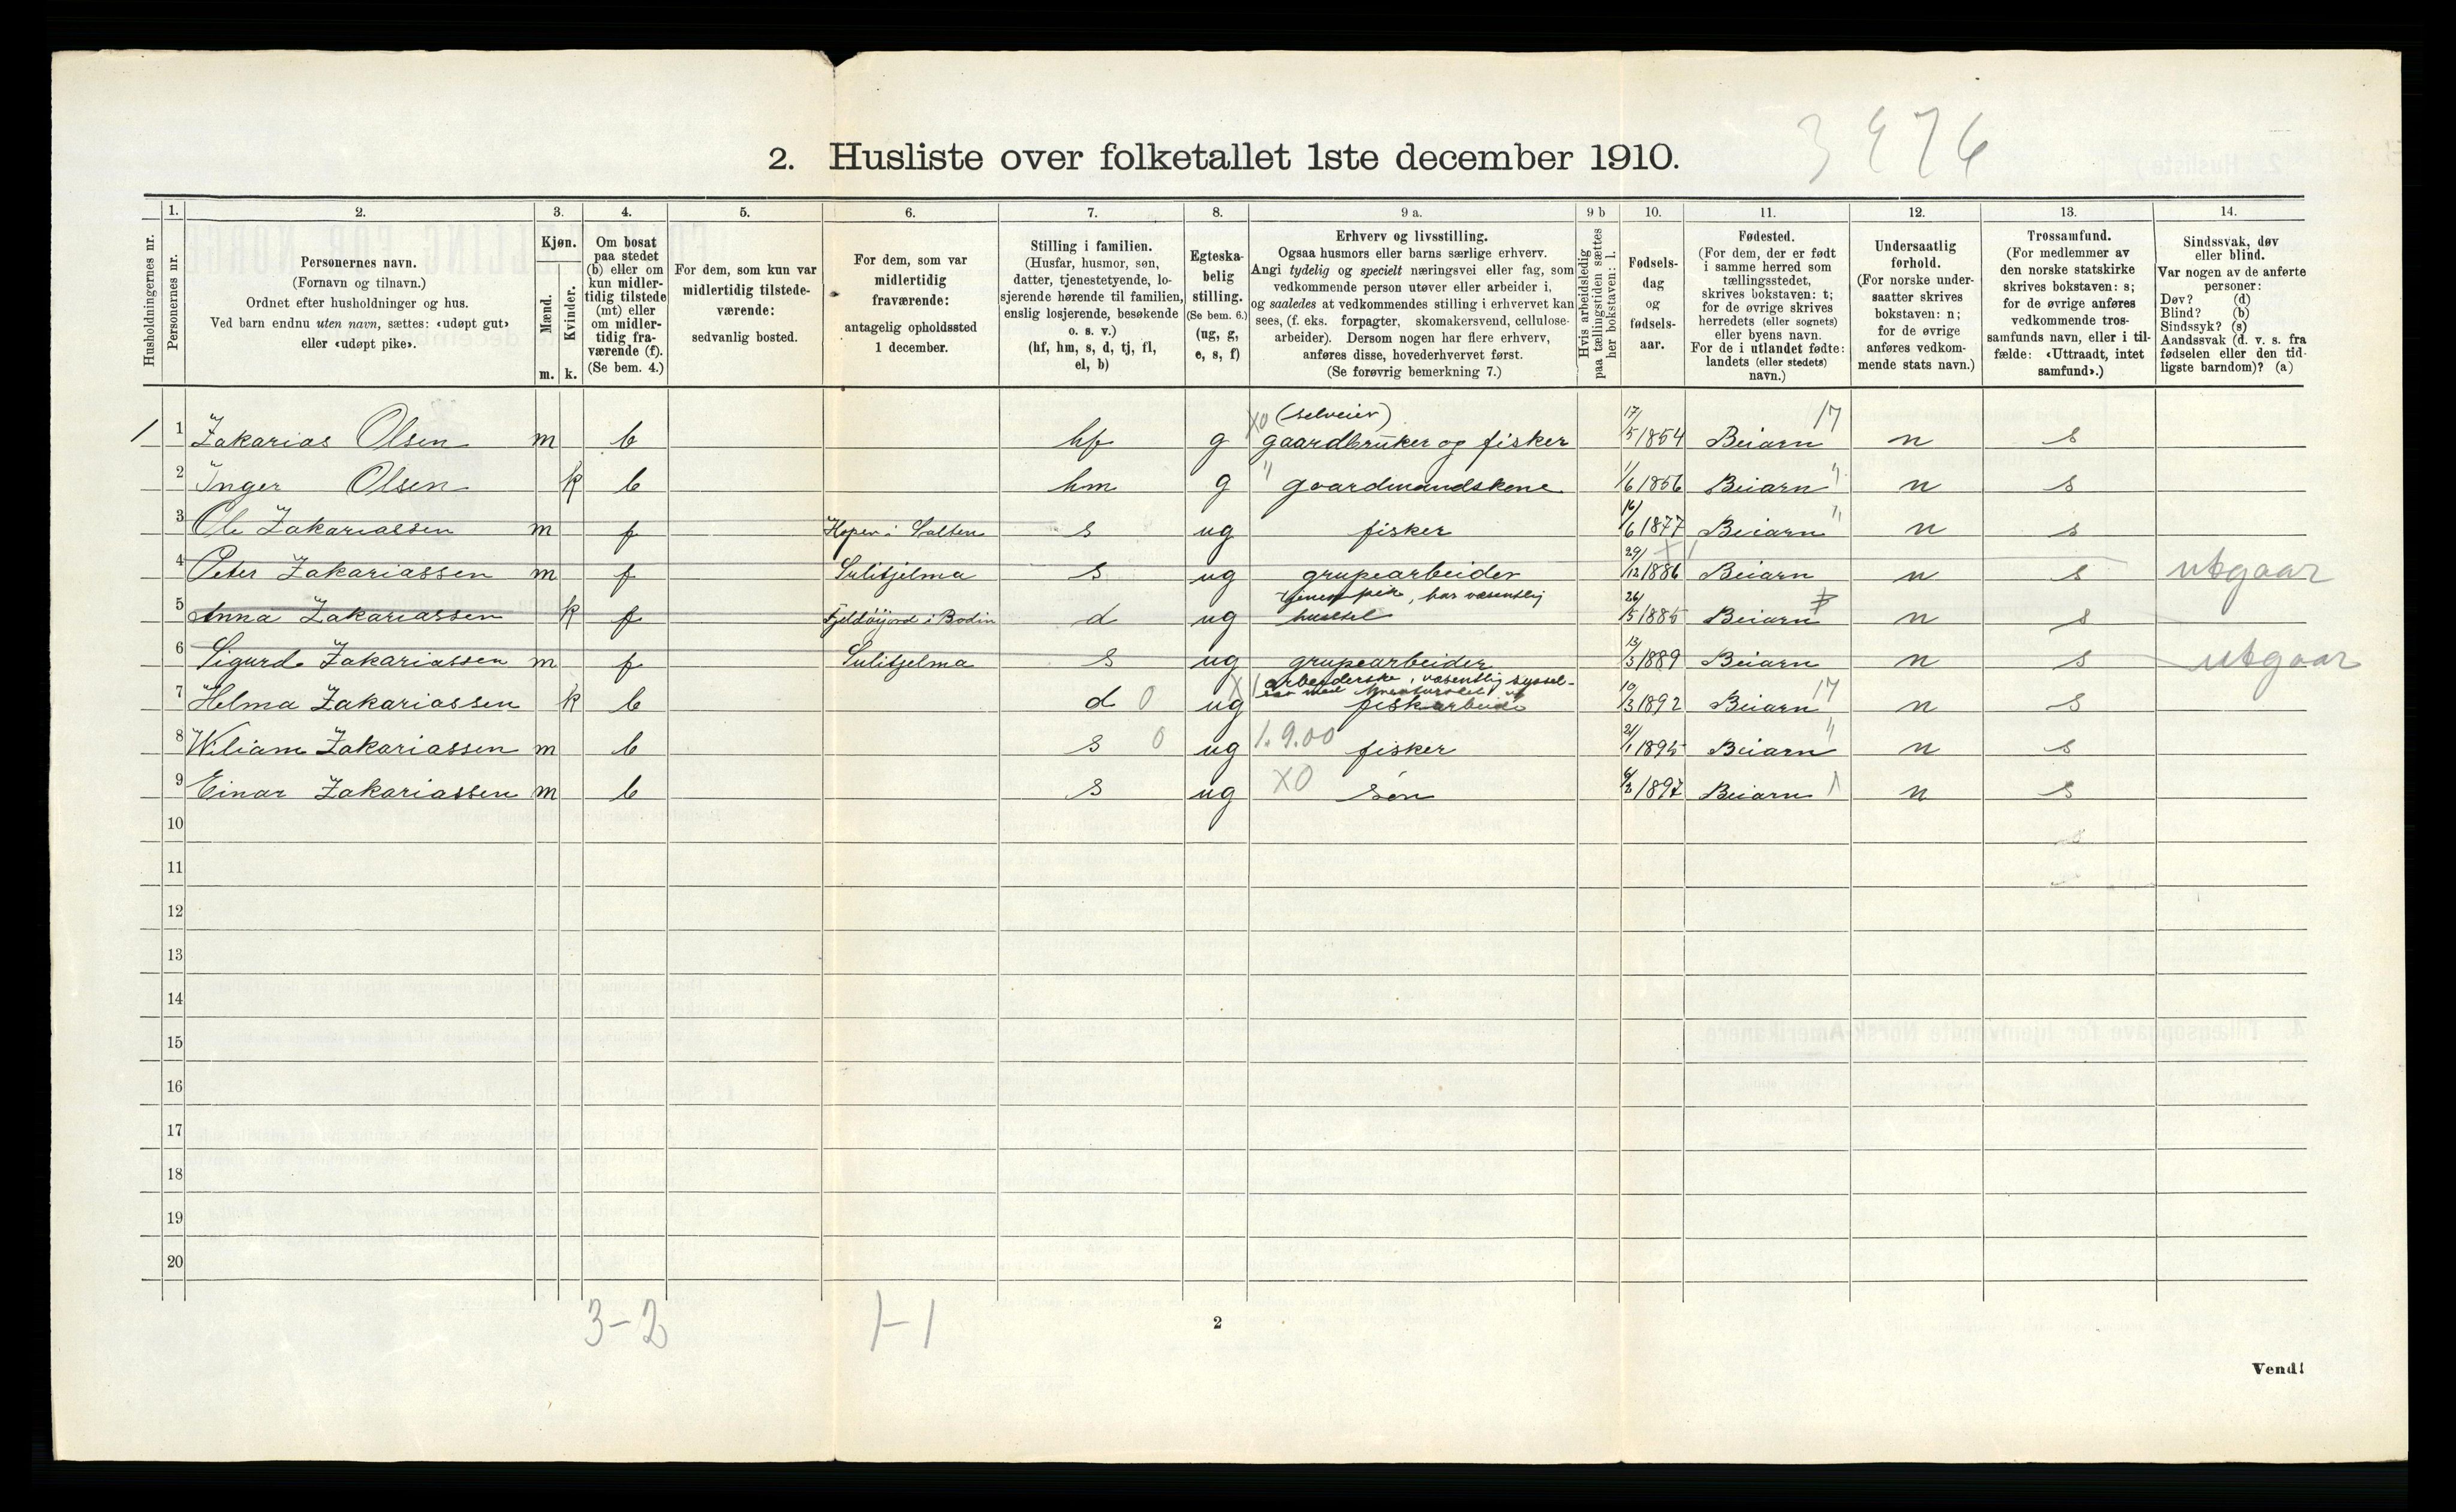 3976
2. Husliste over folketallet 1ste december 1910.
Husholdningernes nr.
1.
Personernes nr.
2.
Personernes navn.
(Fornavn og tilnavn.)
Ordnet efter husholdninger og hus.
Ved barn endnu uten navn, sættes: «udøpt gut»
eller «udøpt pike».
3.
Kjøn.
Mænd.
Kvinder.
m. k.
4.
Om bosat
paa stedet
(b) eller om
kun midler-
tidig tilstede
(mt) eller
om midler-
tidig fra-
værende (f).
(Se bem. 4.)
5.
For dem, som kun var
midlertidig tilstede-
værende:
sedvanlig bosted.
6.
For dem, som var
midlertidig
fraværende:
antagelig opholdssted
1 december.
7.
Stilling i familien.
(Husfar, husmor, søn,
datter, tjenestetyende, lo-
sjerende hørende til familien,
enslig losjerende, besøkende
o. s. v.)
(hf, hm, s, d, tj, fl,
el, b)
8.
Egteska-
belig
stilling.
(Se bem. 6.)
(ug, g,
e, s, f)
9 a.
Erhverv og livsstilling.
Ogsaa husmors eller barns særlige erhverv.
Angi tydelig og specielt næringsvei eller fag, som
vedkommende person utøver eller arbeider i,
og saaledes at vedkommendes stilling i erhvervet kan
sees, (f. eks. forpagter, skomakersvend, cellulose-
arbeider). Dersom nogen har flere erhverv,
anføres disse, hovederhvervet først.
(Se forøvrig bemerkning 7.)
9 b
Hvis arbeidsledig
paa tællingstiden sættes
her bokstaven: l.
10.
Fødsels-
dag
og
fødsels-
aar.
11.
Fødested.
(For dem, der er født
i samme herred som
tællingsstedet,
skrives bokstaven: t;
for de øvrige skrives
herredets (eller sognets)
eller byens navn.
For de i utlandet fødte:
landets (eller stedets)
navn.)
12.
Undersaatlig
forhold.
(For norske under-
saatter skrives
bokstaven: n;
for de øvrige
anføres vedkom-
mende stats navn.)
13.
Trossamfund.
(For medlemmer av
den norske statskirke
skrives bokstaven: s;
for de øvrige anføres
vedkommende tros-
samfunds navn, eller i til-
fælde: «Uttraadt, intet
samfund».)
14.
Sindssvak, døv
eller blind.
Var nogen av de anførte
personer:
Døv? (d)
Blind? (b)
Sindssyk? (s)
Aandssvak (d. v. s. fra
fødselen eller den tid-
ligste barndom)? (a)
XO (selveier) 17
1 1 Zakarias Olsen m b hf g gaardbruker og fisker 17/5 1854 Beiarn n s
2 Inger Olsen k b hm g " gaardmandskone 1/6 1856 Beiarn " n s
3 Ole Zakariassen m f Hopen i Salten s ug fisker 16/6 1877 Beiarn " n s
4 Peter Zakariassen m f Sulitjelma s ug grupearbeider 29/12 1886 Beiarn n s utgaar
5 Anna Zakariassen k f Fjeldøjord i Bodin d ug tjenestpik, har væsentlig
husstel 26/5 1885 Beiarn n s
6 Sigurd Zakariassen m f Sulitjelma s ug grupearbeider 13/3 1889 Beiarn n s utgaar
arbeiderske, væsentlig syssel-
7 Helma Zakariassen k b d 0 ug fiskarbeide 10/3 1892 Beiarn 17 n s
8 Wiliam Zakariassen m b s 0 ug 1.9.00 fisker 21/1 1895 Beiarn " n s
9 Einar Zakariassen m b s ug XO søn 6/2 1897 Beiarn n s
10
11
12
13
14
15
16
17
18
19
20
3-2 1-1
2
Vend!